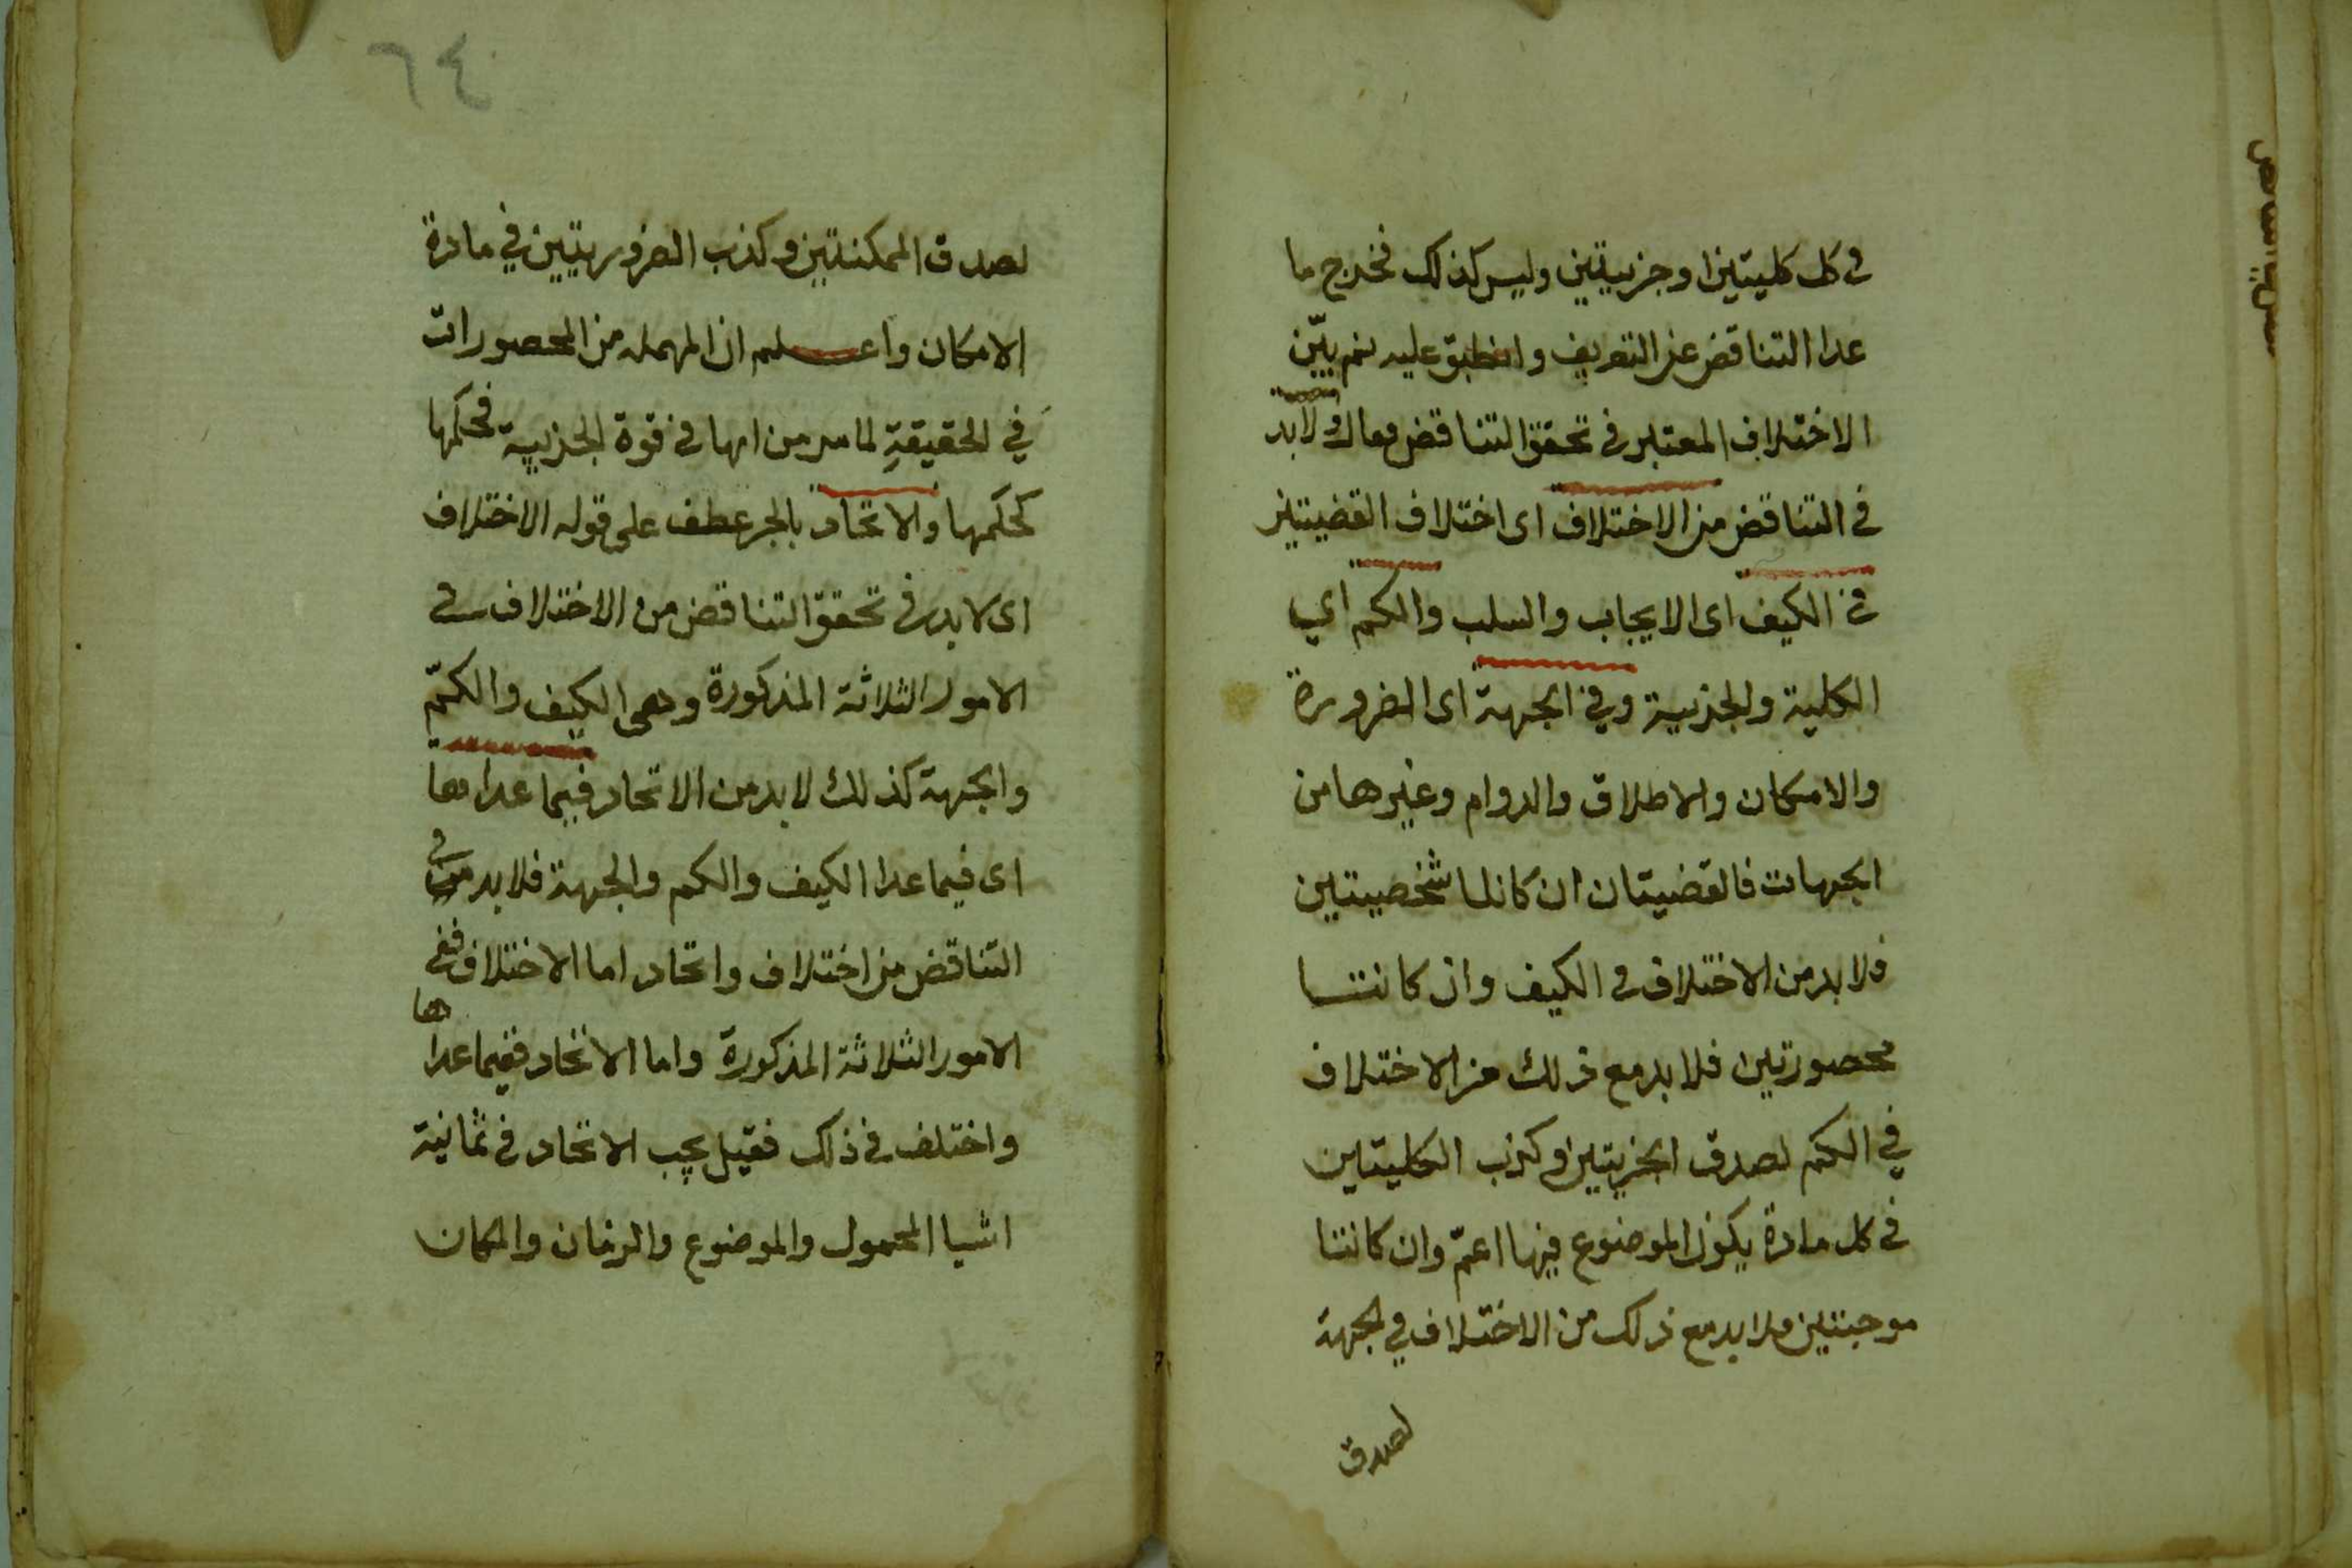 فى كل كليتين او جزييتين وليس كذلك فخرج ما
عدا التناقض عن التعريف وانطبق عليه ثم بيّن
الاختلاف المعتبر فى تحقق التناقض فقال ولابد
فى التناقض من الاختلاف اى اختلاف القضيتين
فى الكيف اى الايجاب والسلب والكم اي
الكلية والجزيية وفي الجهة اى الضرورة
والامكان والاطلاق والدوام وغيرها من
الجهات فالقضيتان ان كانتا شخصيتين
فلا بد من الاختلاف فى الكيف وان كانتا
محصورتين فلا بد مع ذلك من الاختلاف
في الكم لصدق الجزيتين وكذب الكليتين
فى كل مادة يكون الموضوع فيها اعمّ وان كانتا
موجبتين فلا بد مع ذلك من الاختلاف في الجهة
لصدق
٦٤
لصدق الممكنتين وكذب الضروريتين في مادة
الامكان واعلم ان المهمله من المحصورات
في الحقيقةِ لما مر من انها فى قوة الجزيية فحكمها
كحكمها والاتحاد بالجر عطف على قوله الاختلاف
اى لابد فى تحقق التناقض من الاختلاف فى
الامور الثلاثة المذكورة وهى الكيف والكمّ
والجهة كذلك لا بد من الاتحاد فيما عداها
اى فيما عدا الكيف والكم والجهة فلا بد فى
التناقض من اختلاف واتحاد اما الاختلاف ففى
الامور الثلاثة المذكورة واما الاتحاد ففيما عداها
واختلف فى ذلك فقيل يجب الاتحاد فى ثمانية
اشيا المحمول والموضوع والزمان والمكان